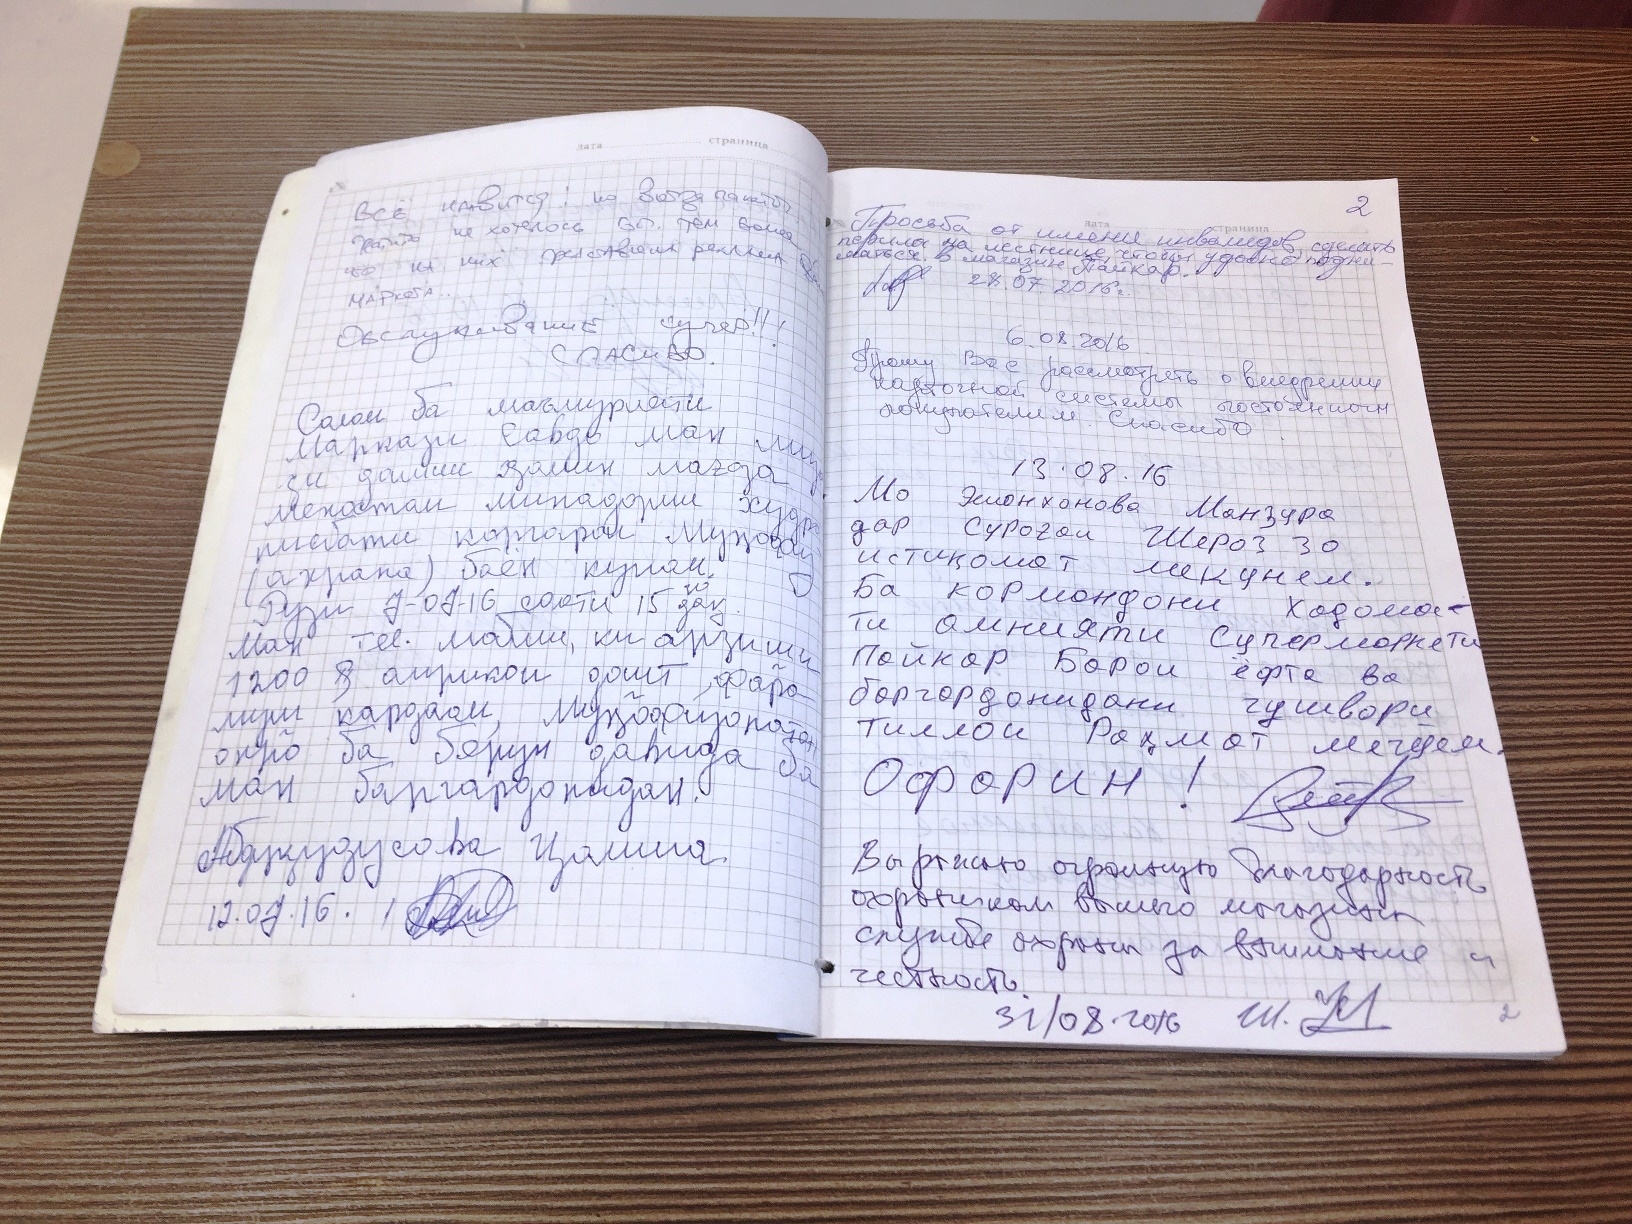 дата страница
Всё нравится! но всегда пакеты
не хотелось бы. тем более
что на них реклама
маркета..
Обслуживание супер!!!
СПАСИБО.
Салом ба маъмурияти
Маркази Савдо ман
ки доими ин мағоза
менатти миннатдории худро
нисбати коргарон Муҳофизат
(охрана) баён кунам.
Рузи 7-07-16 соати 15 10 дақ.
Ман тел. мобли, ки арзиши
1200 $ амрикои дошт фаро-
муш кардам, муҳофизонатон
онро ба берун давида ба
ман баргардониданд.
Абдукудусова
12.07.16.
2
дата страница
Просьба от имени инвалидов, сделать
перила на лестнице, чтобы удобно подни-
маться в магазин Пайкар.
28.07.2016г.
6.08.2016
Прошу Вас рассмотреть о внедрении
системы постоянным
покупателям. Спасибо.
13.08.16
Мо Жмонхонова Манзура
дар сурогаи Шероз 30
истиқомот мекунем.
Ба кормондони Хадома-
ти амнияти Супермаркети
Пайкар Барои ёфта ва
баргардонидани гушвори
тиллои Раҳмат мегуем.
Офарин!
Выражаю огромную благодарность
охранникам вашего магазина
службе охраны за внимание и
честность.
31/08.2016 Ш.
2